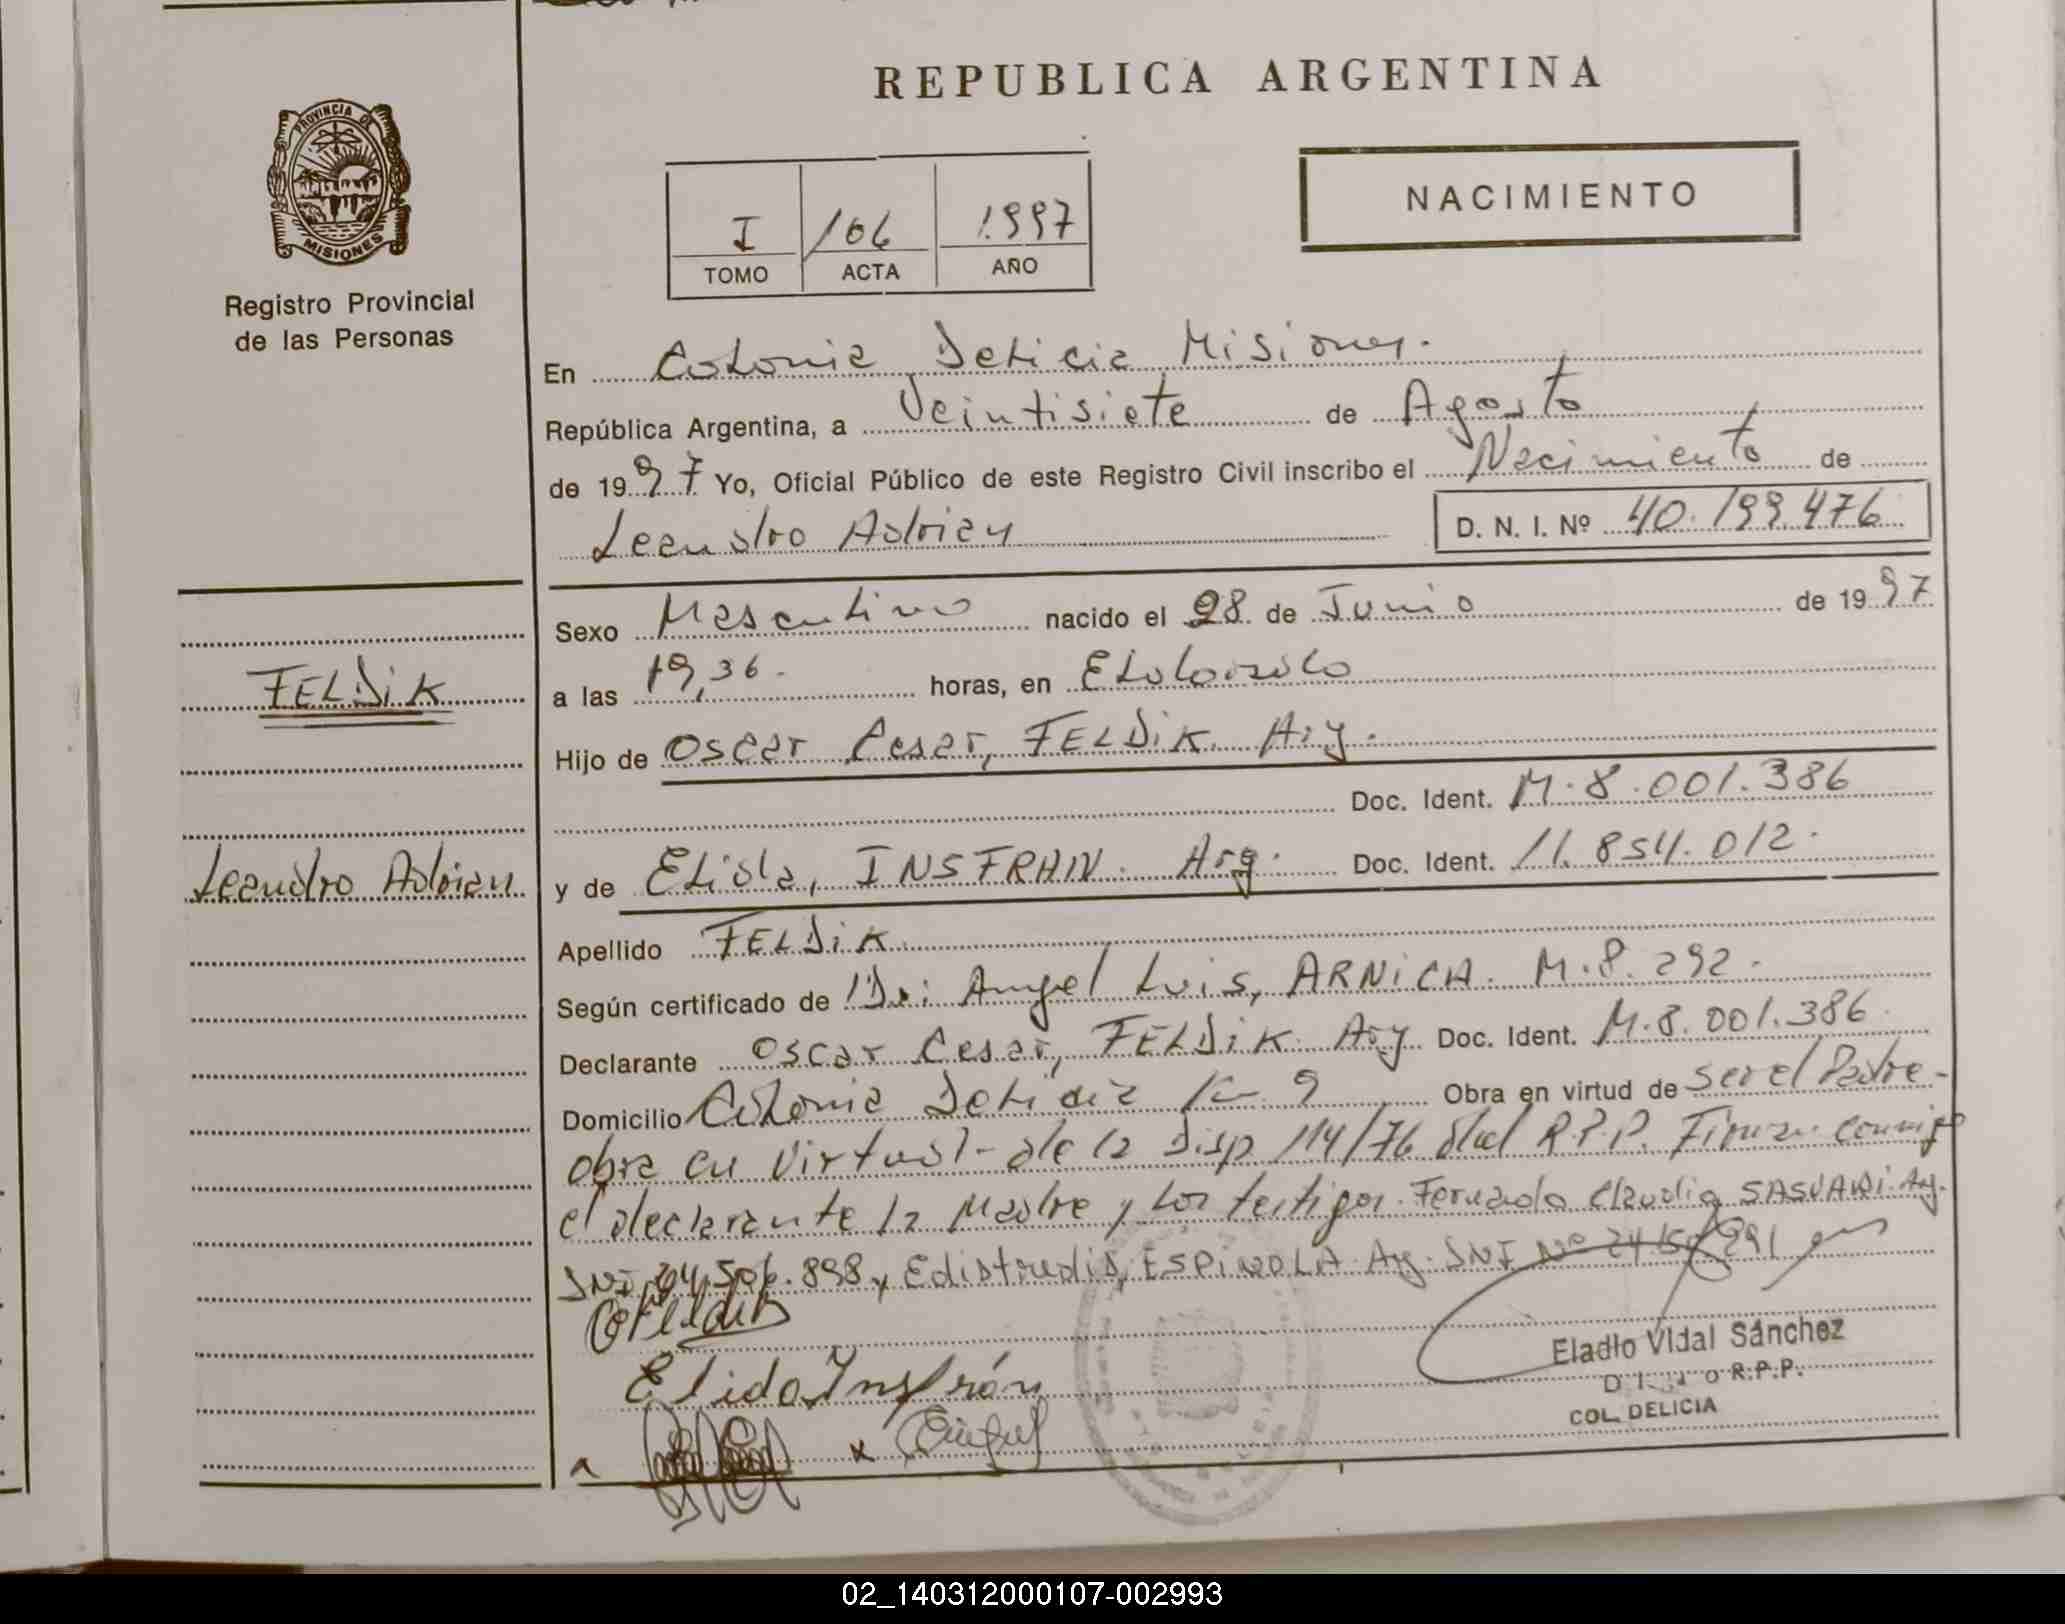 REPUBLICA ARGENTINA
PROVINCIA DE
MISIONES
Registro Provincial
de las Personas
I 106 1.997
TOMO ACTA AÑO
NACIMIENTO
En Colonia Delicia Misiones.
República Argentina, a Veintisiete de Agosto
de 1997 Yo, Oficial Público de este Registro Civil inscribo el Nacimiento de
Leandro Adrian D. N. I. Nº 40.199.476
Sexo Masculino nacido el 28 de Junio de 1997
FELDiK
a las 19,36- horas, en Eldorado
Hijo de Oscar Cesar, FELDiK. Arg.
Doc. Ident. M.8.001.386
Leandro Adrian
y de Elida, INSFRAN. Arg. Doc. Ident. 11.854.012.
Apellido FELDiK
Según certificado de Dr: Angel Luis, ARNiCA. M.P. 292.
Declarante Oscar Cesar, FELDiK. Arg Doc. Ident. M.8.001.386
Domicilio Colonia Delicia Km 9 Obra en virtud de ser el Padre-
obra en Virtud- de la Disp 114/76 del R.P.P. Firman conmigo
el declarante la Madre y los testigos. Fernando Claudio Arg.
DNI. 24.506.898, y ESPiNOLA Arg. DNI Nº
Elida Insfrán
Eladio Vidal Sánchez
R.P.P.
COL. DELICIA
02_140312000107-002993